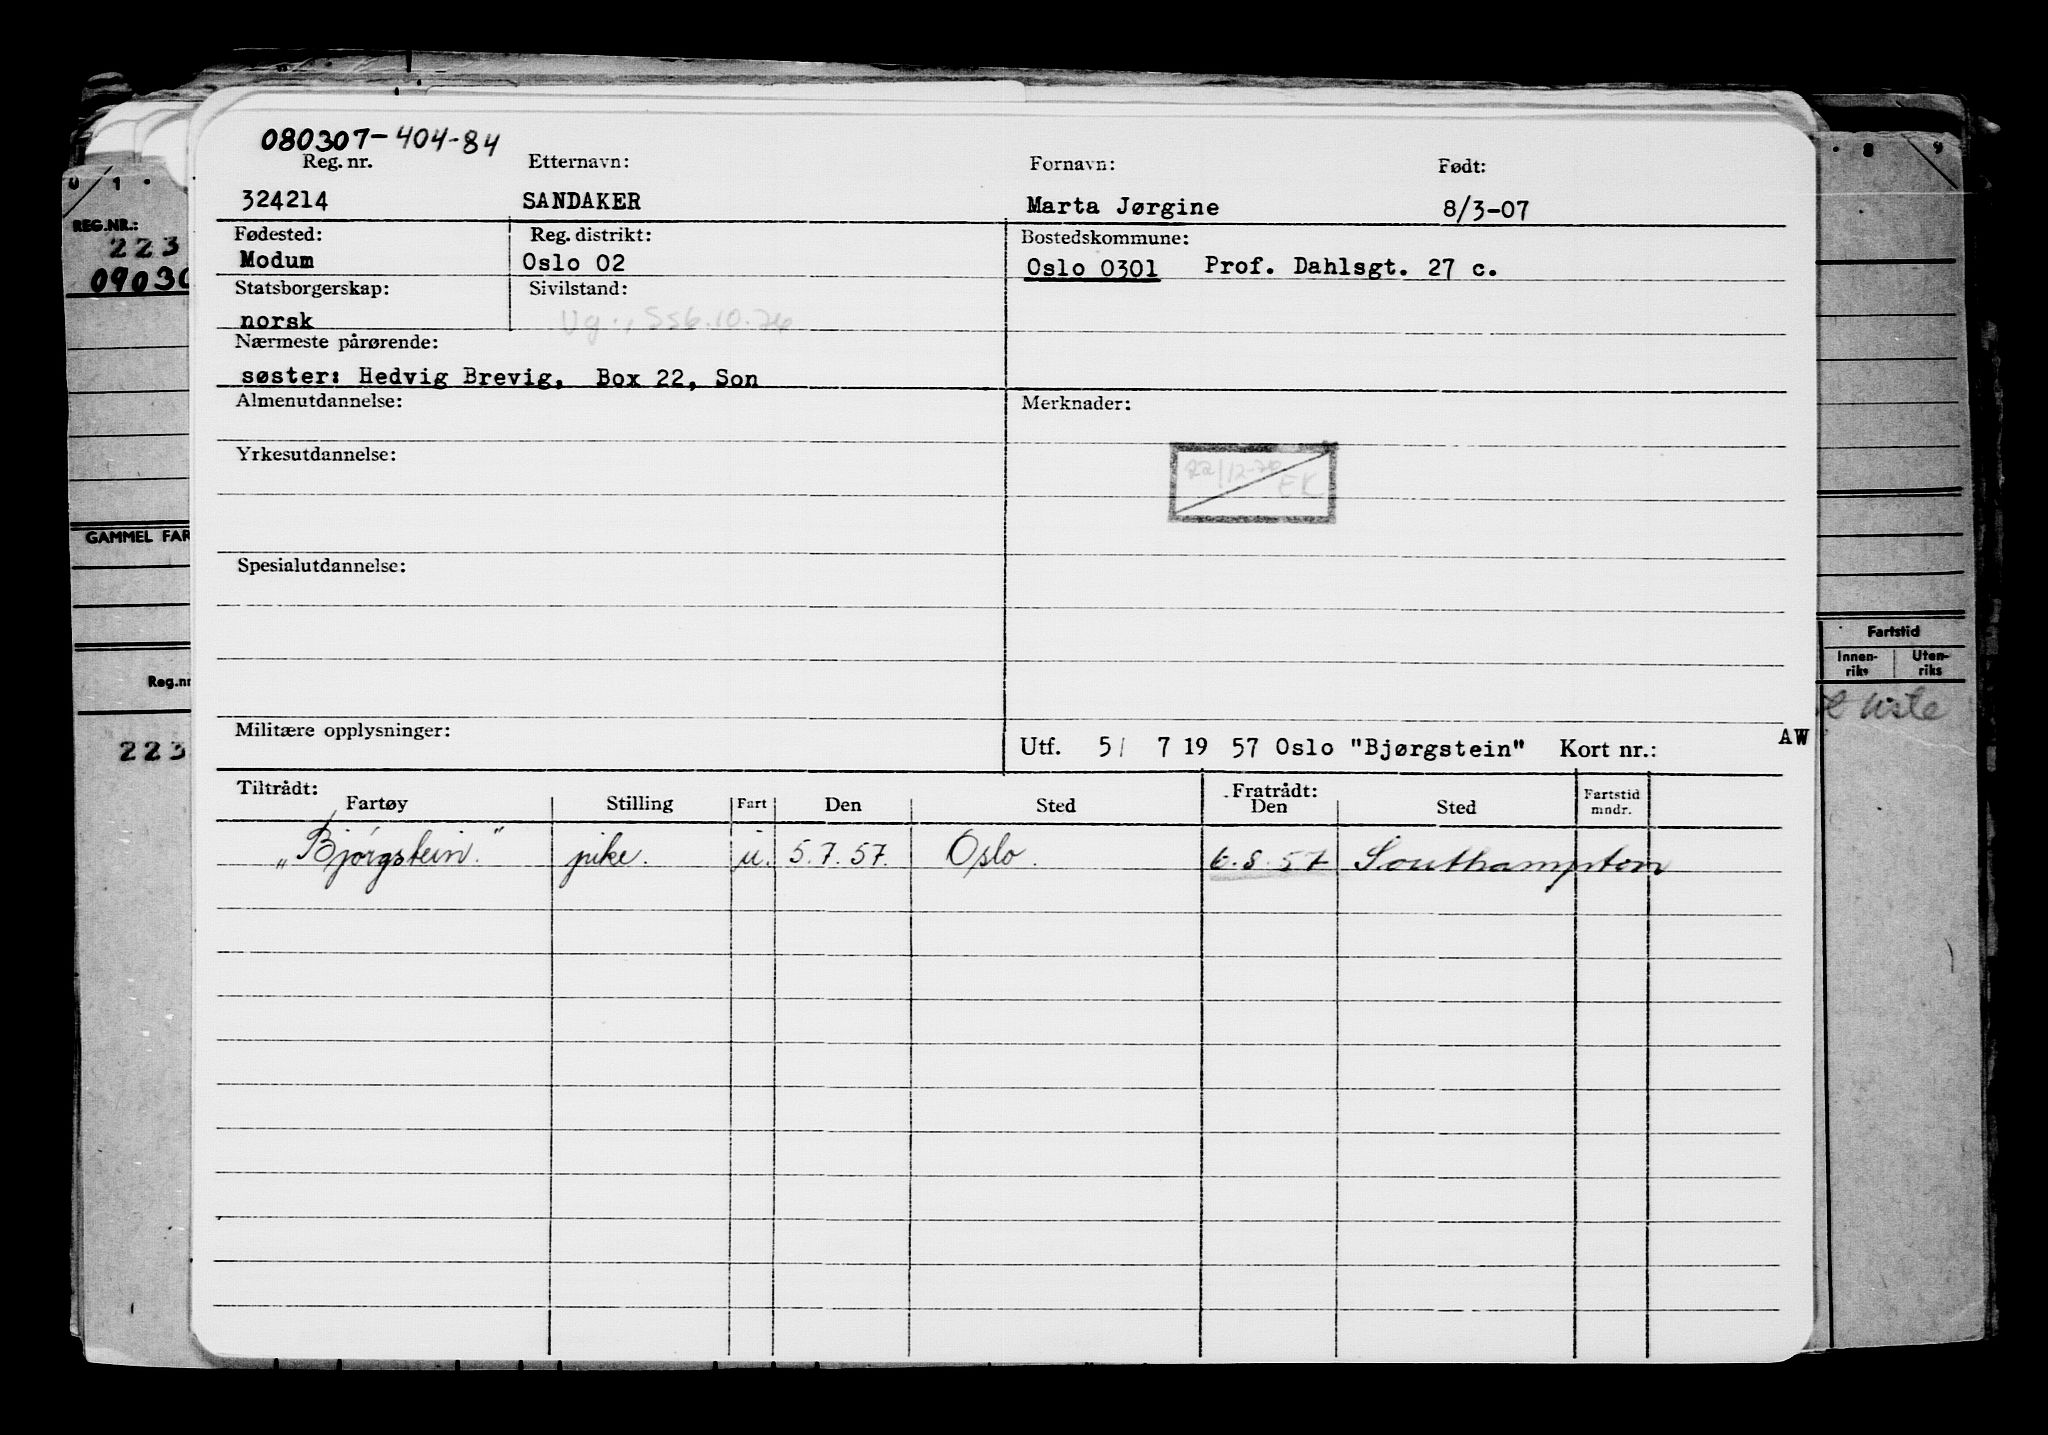 080307-404-84
Reg. nr. Etternavn: Fornavn: Født:
324214 SANDAKER Marta Jørgine 8/3-07
Fødested: Reg. distrikt: Bostedskommune:
Modum Oslo 02 Oslo 0301 Prof. Dahlsgt. 27 c.
Statsborgerskap: Sivilstand:
norsk Ug., Ss6.10.76
Nærmeste pårørende:
søster: Hedvig Brevig, Box 22, Son
Almenutdannelse: Merknader:
Yrkesutdannelse:
EK
Spesialutdannelse:
Militære opplysninger: Utf. 5/ 7 19 57 Oslo "Bjørgstein" Kort nr.: AW
Tiltrådt: Fratrådt:
Fartøy Stilling Fart Den Sted Den Sted Fartstid mndr.
„Bjørgstein." pike. u. 5.7.57. Oslo. 6.8.57 Southampton
0 1 .
REG.NR.:
223
09030
GAMMEL FAR
Reg.nr
223
. 8 9
Fartstid
Innen-riks Uten-riks
liste